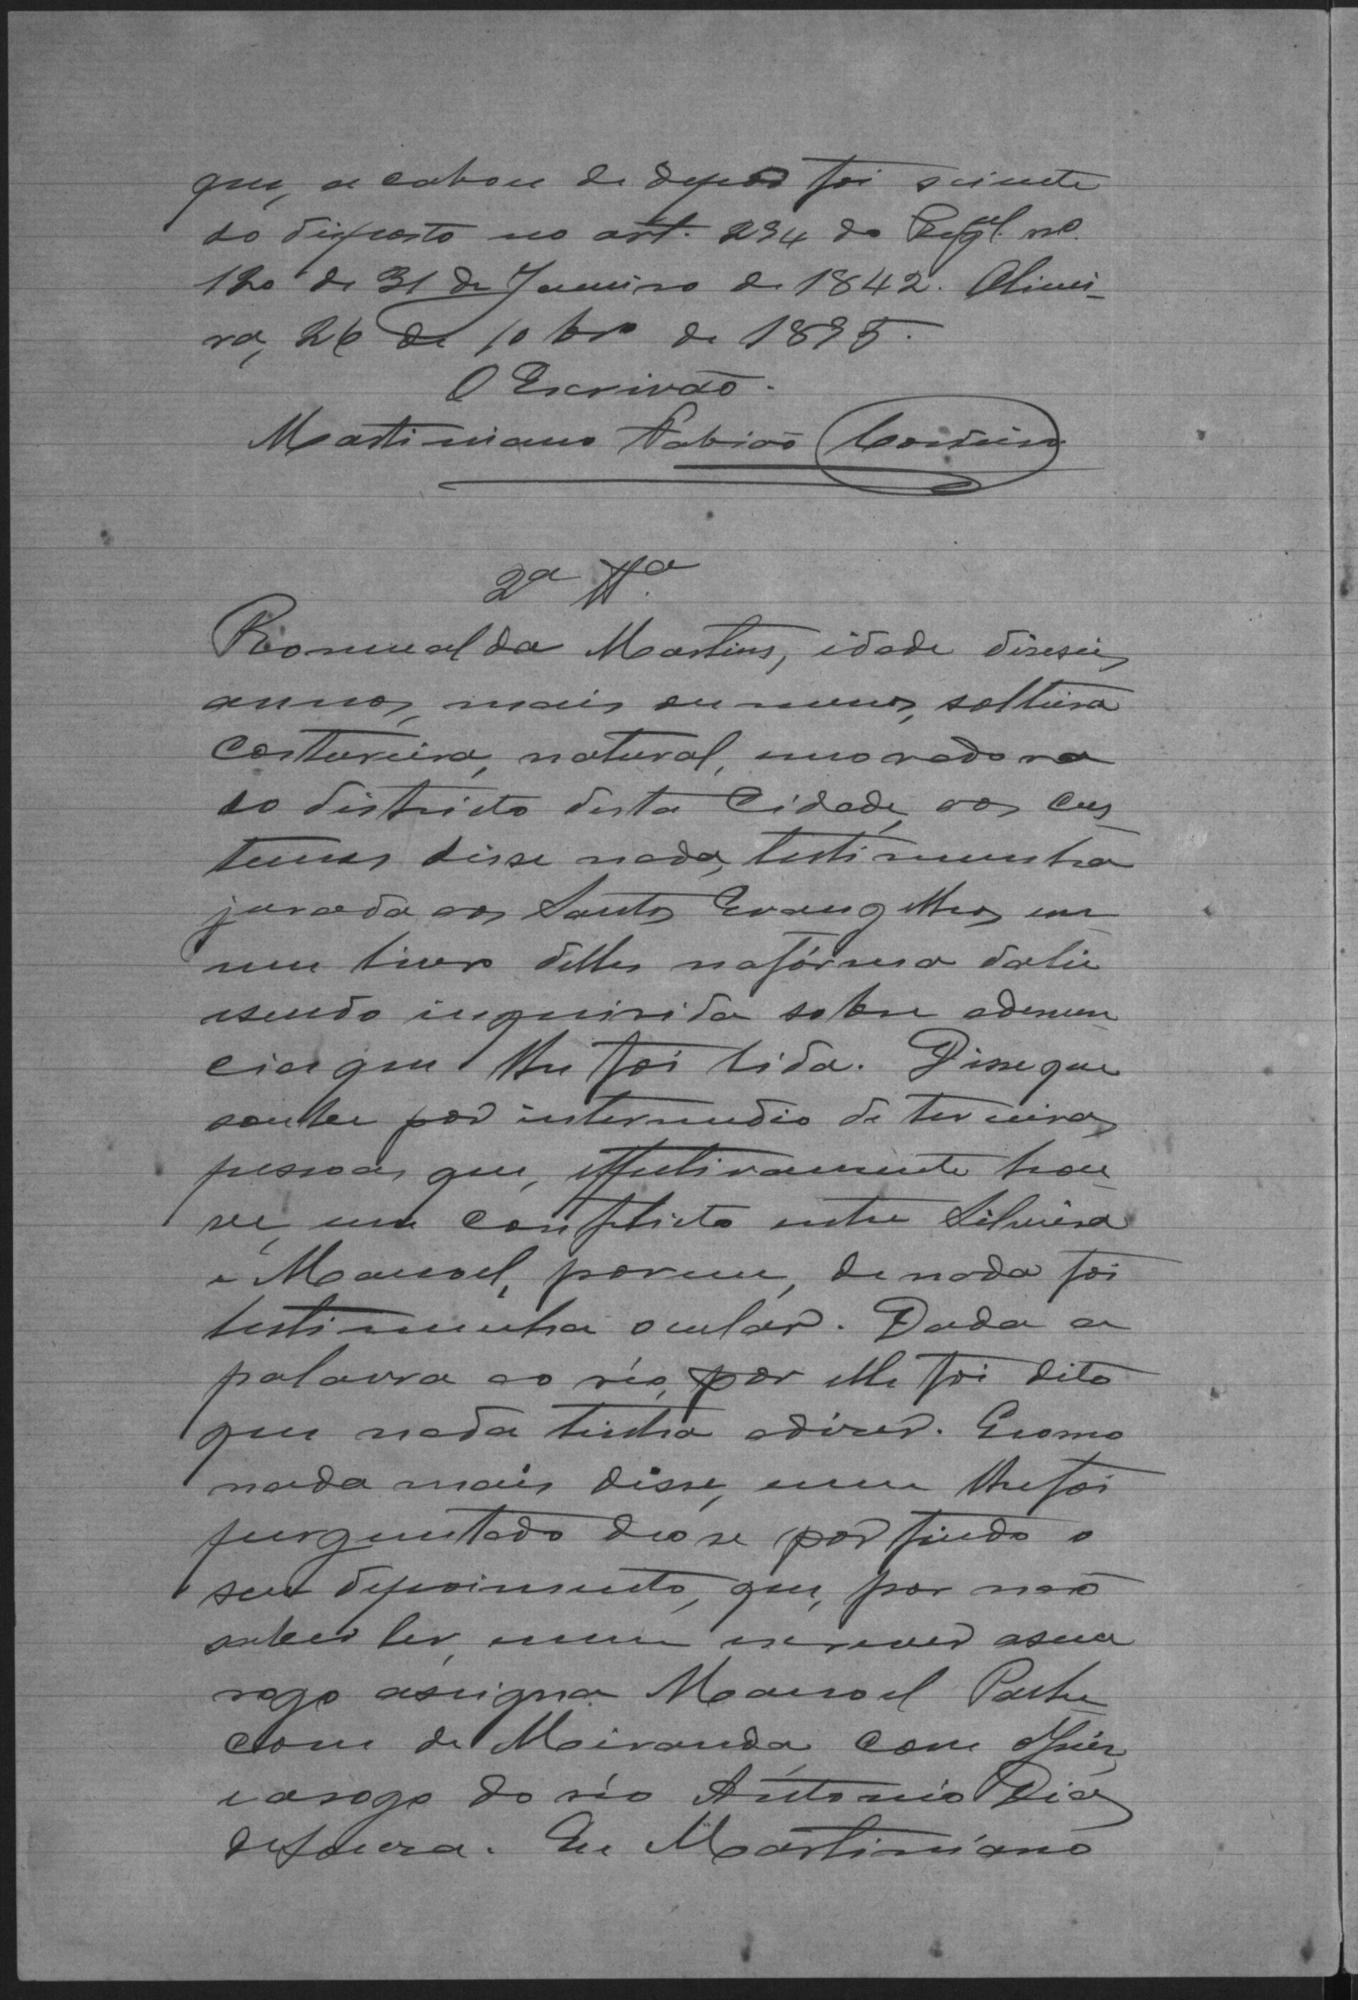 que, acabou de depôr foi sciente
do disposto no art. 294 do Regl. nº.
120 de 31 de Janeiro de 1842. Olivei-
ra, 26 de 10 bro de 1895.
O Escrivão.
Martiniano Fabião Cordeiro
2ª Tª.
Romualda Martins, idade diseseis
annos, mais ou menos, solteira
costureira, natural, moradora
do districto desta Cidade, aos cus
tumes disse nada, testimunha
jurada aos Santos Evangelhos em
um livro delles na fórma da lei
esendo inquirida sobre adenun
cia que lhe foi lida. Disse que
soube por intermedio de terceiras
pessoas que, effectivamente hou
ve, um conflicto entre Silveira
e Manoel, porem, de nada foi
testimunha ocular. Dada a
palavra ao réo, por elle foi dito
que nada tinha adizer. Ecomo
nada mais disse, nem lhe foi
perguntado deo se por findo o
seu depoimento, que, por não
saber ler, nem escrever asua
rogo assigna Manoel Pache
co de Miranda, com o Juiz,
earogo do réo Antonio Dias
de Eu Martiniano